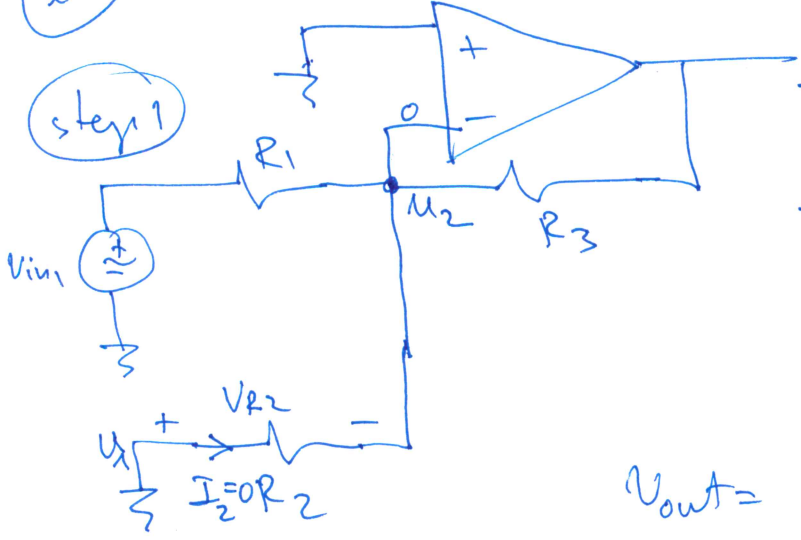 +
0
−
step 1
R1
u2
R3
Vin1
+
VR2
+
−
I2=0
R2
Vout=